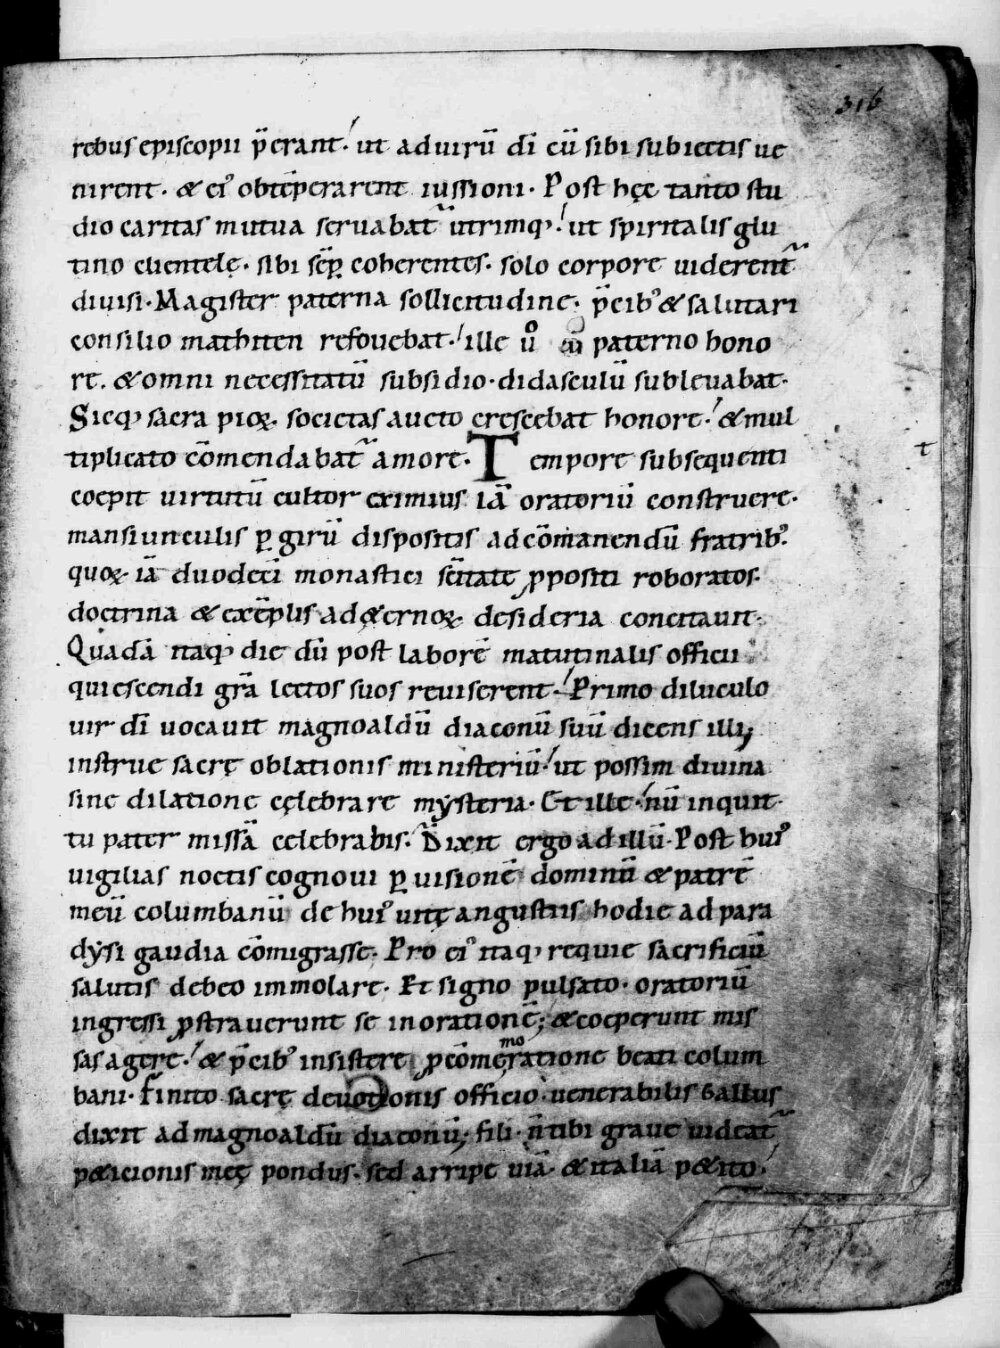 316
rebus episcopii p̄erant. ut ad uirū dī cū sibi subiectis ue
nirent. & ei' obtēperarent iussioni. Post hęc tanto stu
dio caritas mutua seruabat᷑ utrimq; ut spiritalis glu
tino clientelę. sibi sēꝑ coherentes. solo corpore uiderent᷑
diuisi. Magister paterna sollicitudine. p̄cib' & salutari
consilio mathiten refouebat. ille ū cū paterno hono
re. & omni necessitatū subsidio. didasculū subleuabat.
Sicq; sacra pioꝝ. societas aucto crescebat honore. & mul
tiplicato cōmendabat᷑ amore. Tempore subsequenti
t
coepit uirtutū cultor eximius iā oratoriū construere.
mansiunculis ꝑ girū dispositis ad cōmanendū fratrib'.
quoꝝ iā duodecī monastici sc̄itatę ꝓpositi roboratos.
doctrina & exēplis ad &ernoꝝ desideria concitauit.
Quadā itaq; die dū post laborē matutinalis officii
quiescendi gr̄a lectos suos reuiserent. Primo diluculo
uir dī uocauit magnoaldū diaconū suū dicens illi;
instrue sacrę oblationis ministeriū. ut possim diuina
sine dilatione cęlebrare mẏsteria. Et ille. nū inquit.
tu pater missā celebrabis. Dixit ergo ad illū. Post hui'
uigilias noctis cognoui ꝑ uisionē dominū & patrē
meū columbanū de hui' uitę angustiis hodie ad para
dẏsi gaudia cōmigrasse. Pro ei' itaq; requie sacrificiū
salutis debeo immolare. Et signo pulsato. oratoriū
ingressi ꝓstrauerunt se in orationē; & coeperunt mis
sas agere. & p̄cib' insistere ꝓ cōmemoratione beati colum
bani. Finito sacrę deuotionis officio. uenerabilis Gallus
dixit ad magnoaldū diaconū; fili. n̄ tibi graue uideat᷑
p&icionis meę pondus. sed arripe uiā. & italiā p&ito.